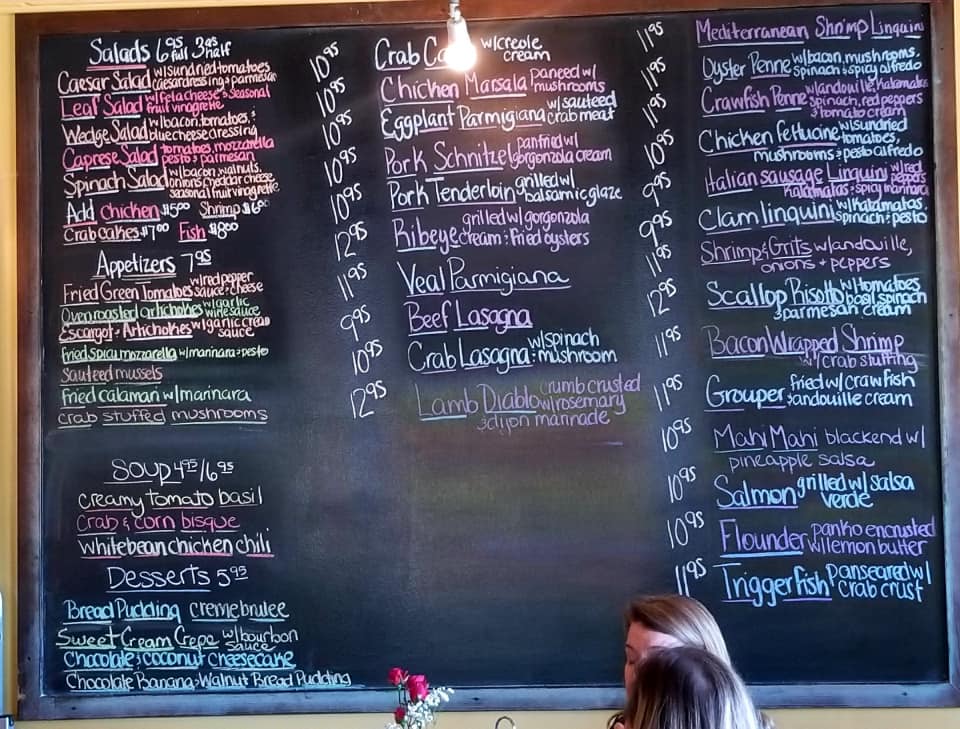 Salads 6.95 full 3.95 half
Caesar Salad w/sundried tomatoes
caesar dressing & parmesan
Leaf Salad w/feta cheese & seasonal
fruit vinagrette
Wedge Salad w/bacon, tomatoes, &
blue cheese dressing
Caprese Salad tomatoes, mozzarella
pesto & parmesan
Spinach Salad w/bacon, walnuts,
onions, cheddar cheese
seasonal fruit vinagrette
Add chicken $5.00 Shrimp $6.00
Crab cakes $7.00 Fish $8.00
Appetizers 7.95
Fried Green Tomatoes w/red pepper
sauce & cheese
Oven roasted artichokes w/garlic
wine sauce
Escargot & Artichokes w/garlic cream
sauce
Fried spicy mozzarella w/marinara & pesto
Sauteed mussels
fried calamari w/marinara
crab stuffed mushrooms
Soup 4.95/6.95
creamy tomato basil
Crab & corn bisque
white bean chicken chili
Desserts 5.95
Bread Pudding creme brulee
Sweet Cream Crepe w/bourbon
sauce
Chocolate & coconut cheesecake
Chocolate Banana & Walnut Bread Pudding
10.95 Crab w/creole
cream
10.95 Chicken Marsala paneed w/
mushrooms
10.95 Eggplant Parmigiana w/sauteed
crab meat
10.95 Pork Schnitzel panfried w/
gorgonzola cream
10.95 Pork Tenderloin grilled w/
balsamic glaze
12.95 Ribeye grilled w/gorgonzola
cream & fried oysters
11.95 Veal Parmigiana
9.95 Beef Lasagna
10.95 Crab Lasagna w/spinach
& mushroom
12.95 Lamb Diablo crumb crusted
w/rosemary
& dijon marinade
11.95 Mediterranean Shrimp Linguini
11.95 Oyster Penne w/bacon, mushrooms,
spinach & spicy alfredo
11.95 Crawfish Penne w/andouille, kalamatas
spinach, red peppers
& tomato cream
10.95 Chicken fettucine w/sundried
tomatoes,
mushrooms & pesto alfredo
9.95 Italian sausage Linguini w/red
peppers
kalamatas & spicy marinara
9.95 Clam linguini w/kalamatas
spinach & pesto
11.95 Shrimp & Grits w/andouille,
onions + peppers
12.95 Scallop Risotto w/tomatoes
basil, spinach
& parmesan cream
11.95 Bacon Wrapped Shrimp
w/crab stuffing
11.95 Grouper fried w/crawfish
& andouille cream
10.95 Mahi Mahi blackend w/
pineapple salsa
10.95 Salmon grilled w/salsa
verde
10.95 Flounder panko encrusted
w/lemon butter
11.95 Triggerfish pan seared w/
crab crust